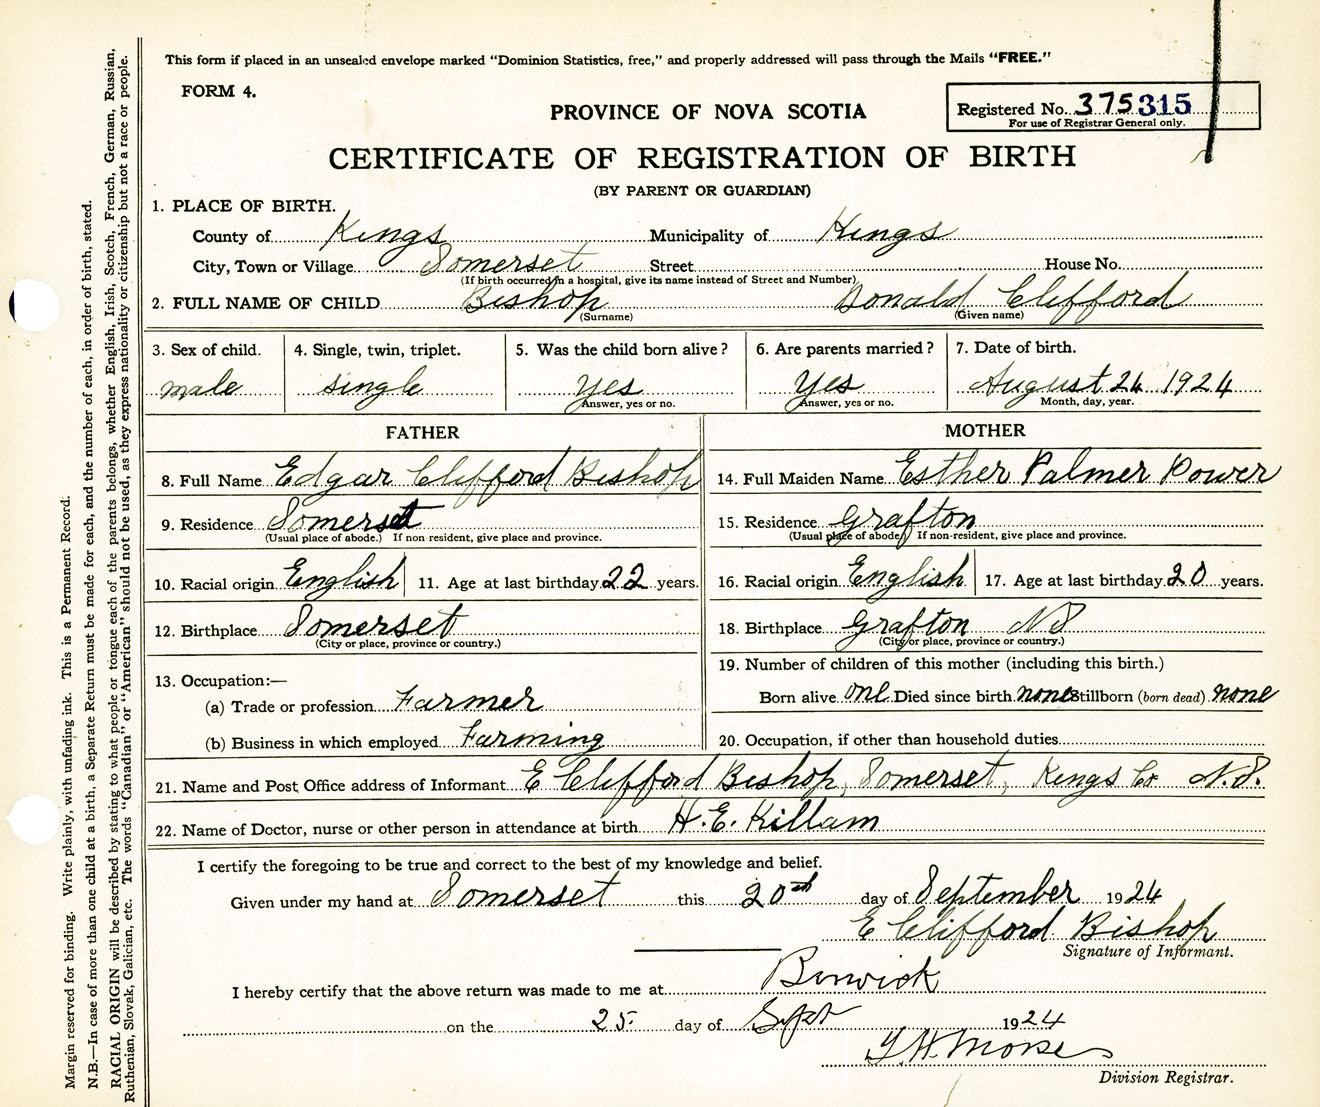 This form if placed in an unsealed envelope marked "Dominion Statistics, free," and properly addressed will pass through the Mails "FREE."
FORM 4.
PROVINCE OF NOVA SCOTIA
Registered No. 375315
For use of Registrar General only.
CERTIFICATE OF REGISTRATION OF BIRTH
(BY PARENT OR GUARDIAN)
1. PLACE OF BIRTH.
County of Kings Municipality of Kings
City, Town or Village Somerset Street House No.
(If birth occurred in a hospital, give its name instead of Street and Number)
2. FULL NAME OF CHILD Bishop Donald Clifford
(Surname) (Given name)
3. Sex of child. 4. Single, twin, triplet. 5. Was the child born alive? 6. Are parents married? 7. Date of birth.
male single yes yes August 26 1924
Answer, yes or no. Answer, yes or no. Month, day, year.
FATHER MOTHER
8. Full Name Edgar Clifford Bishop 14. Full Maiden Name Esther Palmer Power
9. Residence Somerset 15. Residence Grafton
(Usual place of abode.) If non-resident, give place and province. (Usual place of abode.) If non-resident, give place and province.
10. Racial origin English 11. Age at last birthday 22 years. 16. Racial origin English 17. Age at last birthday 20 years.
12. Birthplace Somerset 18. Birthplace Grafton NS
(City or place, province or country.) (City or place, province or country.)
13. Occupation:— 19. Number of children of this mother (including this birth.)
(a) Trade or profession Farmer Born alive one Died since birth none Stillborn (born dead) none
(b) Business in which employed Farming 20. Occupation, if other than household duties
21. Name and Post Office address of Informant E Clifford Bishop, Somerset, Kings Co N.S.
22. Name of Doctor, nurse or other person in attendance at birth H. E. Killam
I certify the foregoing to be true and correct to the best of my knowledge and belief.
Given under my hand at Somerset this 20th day of September 1924
E Clifford Bishop
Signature of Informant.
I hereby certify that the above return was made to me at Berwick
on the 25 day of Sept 1924
Morse
Division Registrar.
Margin reserved for binding. Write plainly, with unfading ink. This is a Permanent Record.
N.B.—In case of more than one child at a birth, a Separate Return must be made for each, and the number of each, in order of birth, stated.
RACIAL ORIGIN will be described by stating to what people or tongue each of the parents belongs, whether English, Irish, Scotch, French, German, Russian,
Ruthenian, Slovak, Galician, etc. The words "Canadian" or "American" should not be used, as they express nationality or citizenship but not a race or people.